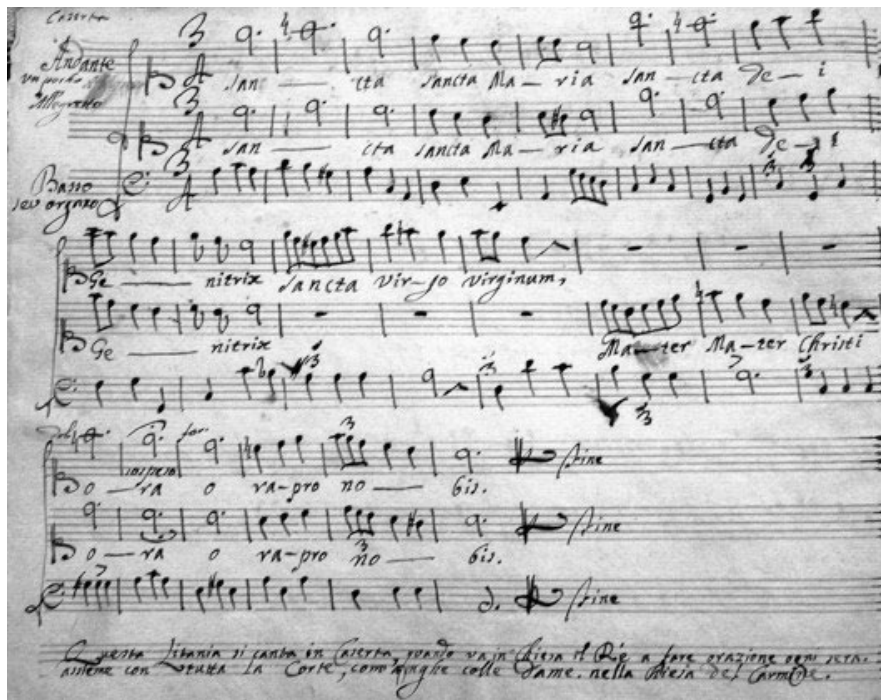 Caserta
Andante
un pocho
Allegretto
San — cta Sancta Ma — ria San — cta De — i
San — cta Sancta Ma — ria San — cta De — i
Basso
seu organo
Ge — nitrix Sancta Virgo virginum,
Ge — nitrix Ma — ter Ma — ter Christi
dol. for.
sospeso
o — ra o ra — pro no — bis. fine
o — ra o ra — pro no — bis. fine
fine
Questa Litania si canta in Caserta, quando va in Chiesa il Rè a fare orazione ogni sera.
assieme con tutta la Corte, com'anche colle Dame. nella Chiesa del Carmine.